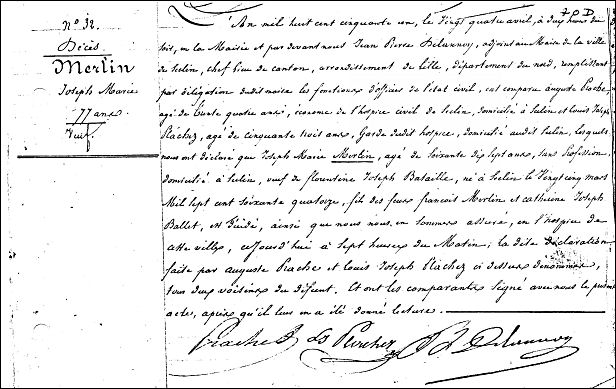 N° 32
Décès
Merlin
Joseph Marie
77 ans
Veuf
70 D
L'An mil huit cent cinquante un, le Vingt quatre avril, à deux heures du
soir, en la Mairie et par devant nous Jean Pierre Delannoy, adjoint au Maire de la ville
de Seclin, chef lieu de canton, arrondissement de Lille, département du nord, remplissant
par délégation dudit maire les fonctions d'officier de l'état civil, est comparu auguste Rache
agé de trente quatre ans, économe de l'hospice civil de Seclin, domicilié à Seclin et Louis Joseph
Rachez, agé de cinquante trois ans, Garde dudit hospice, domicilié audit Seclin, lesquels
nous ont déclaré que Joseph Marie Merlin, agé de soixante dix sept ans, sans Profession
domicilié à Seclin, veuf de florentine Joseph Bataille, né à Seclin le Vingt cinq mars
Mil sept cent soixante quatorze, fils des feux françois Merlin et catherine Joseph
Ballet, est décédé, ainsi que nous nous en sommes assuré, en l'hospice de
cette ville, cejourd'hui à sept heures du Matin; la dite déclaration
faite par auguste Rache et Louis Joseph Rachez ci dessus dénommés,
tous deux voisins du défunt. Et ont les comparants signé avec nous le présent
acte, après qu'il leur en a été donné lecture.
Rache Ls Rachez Delannoy